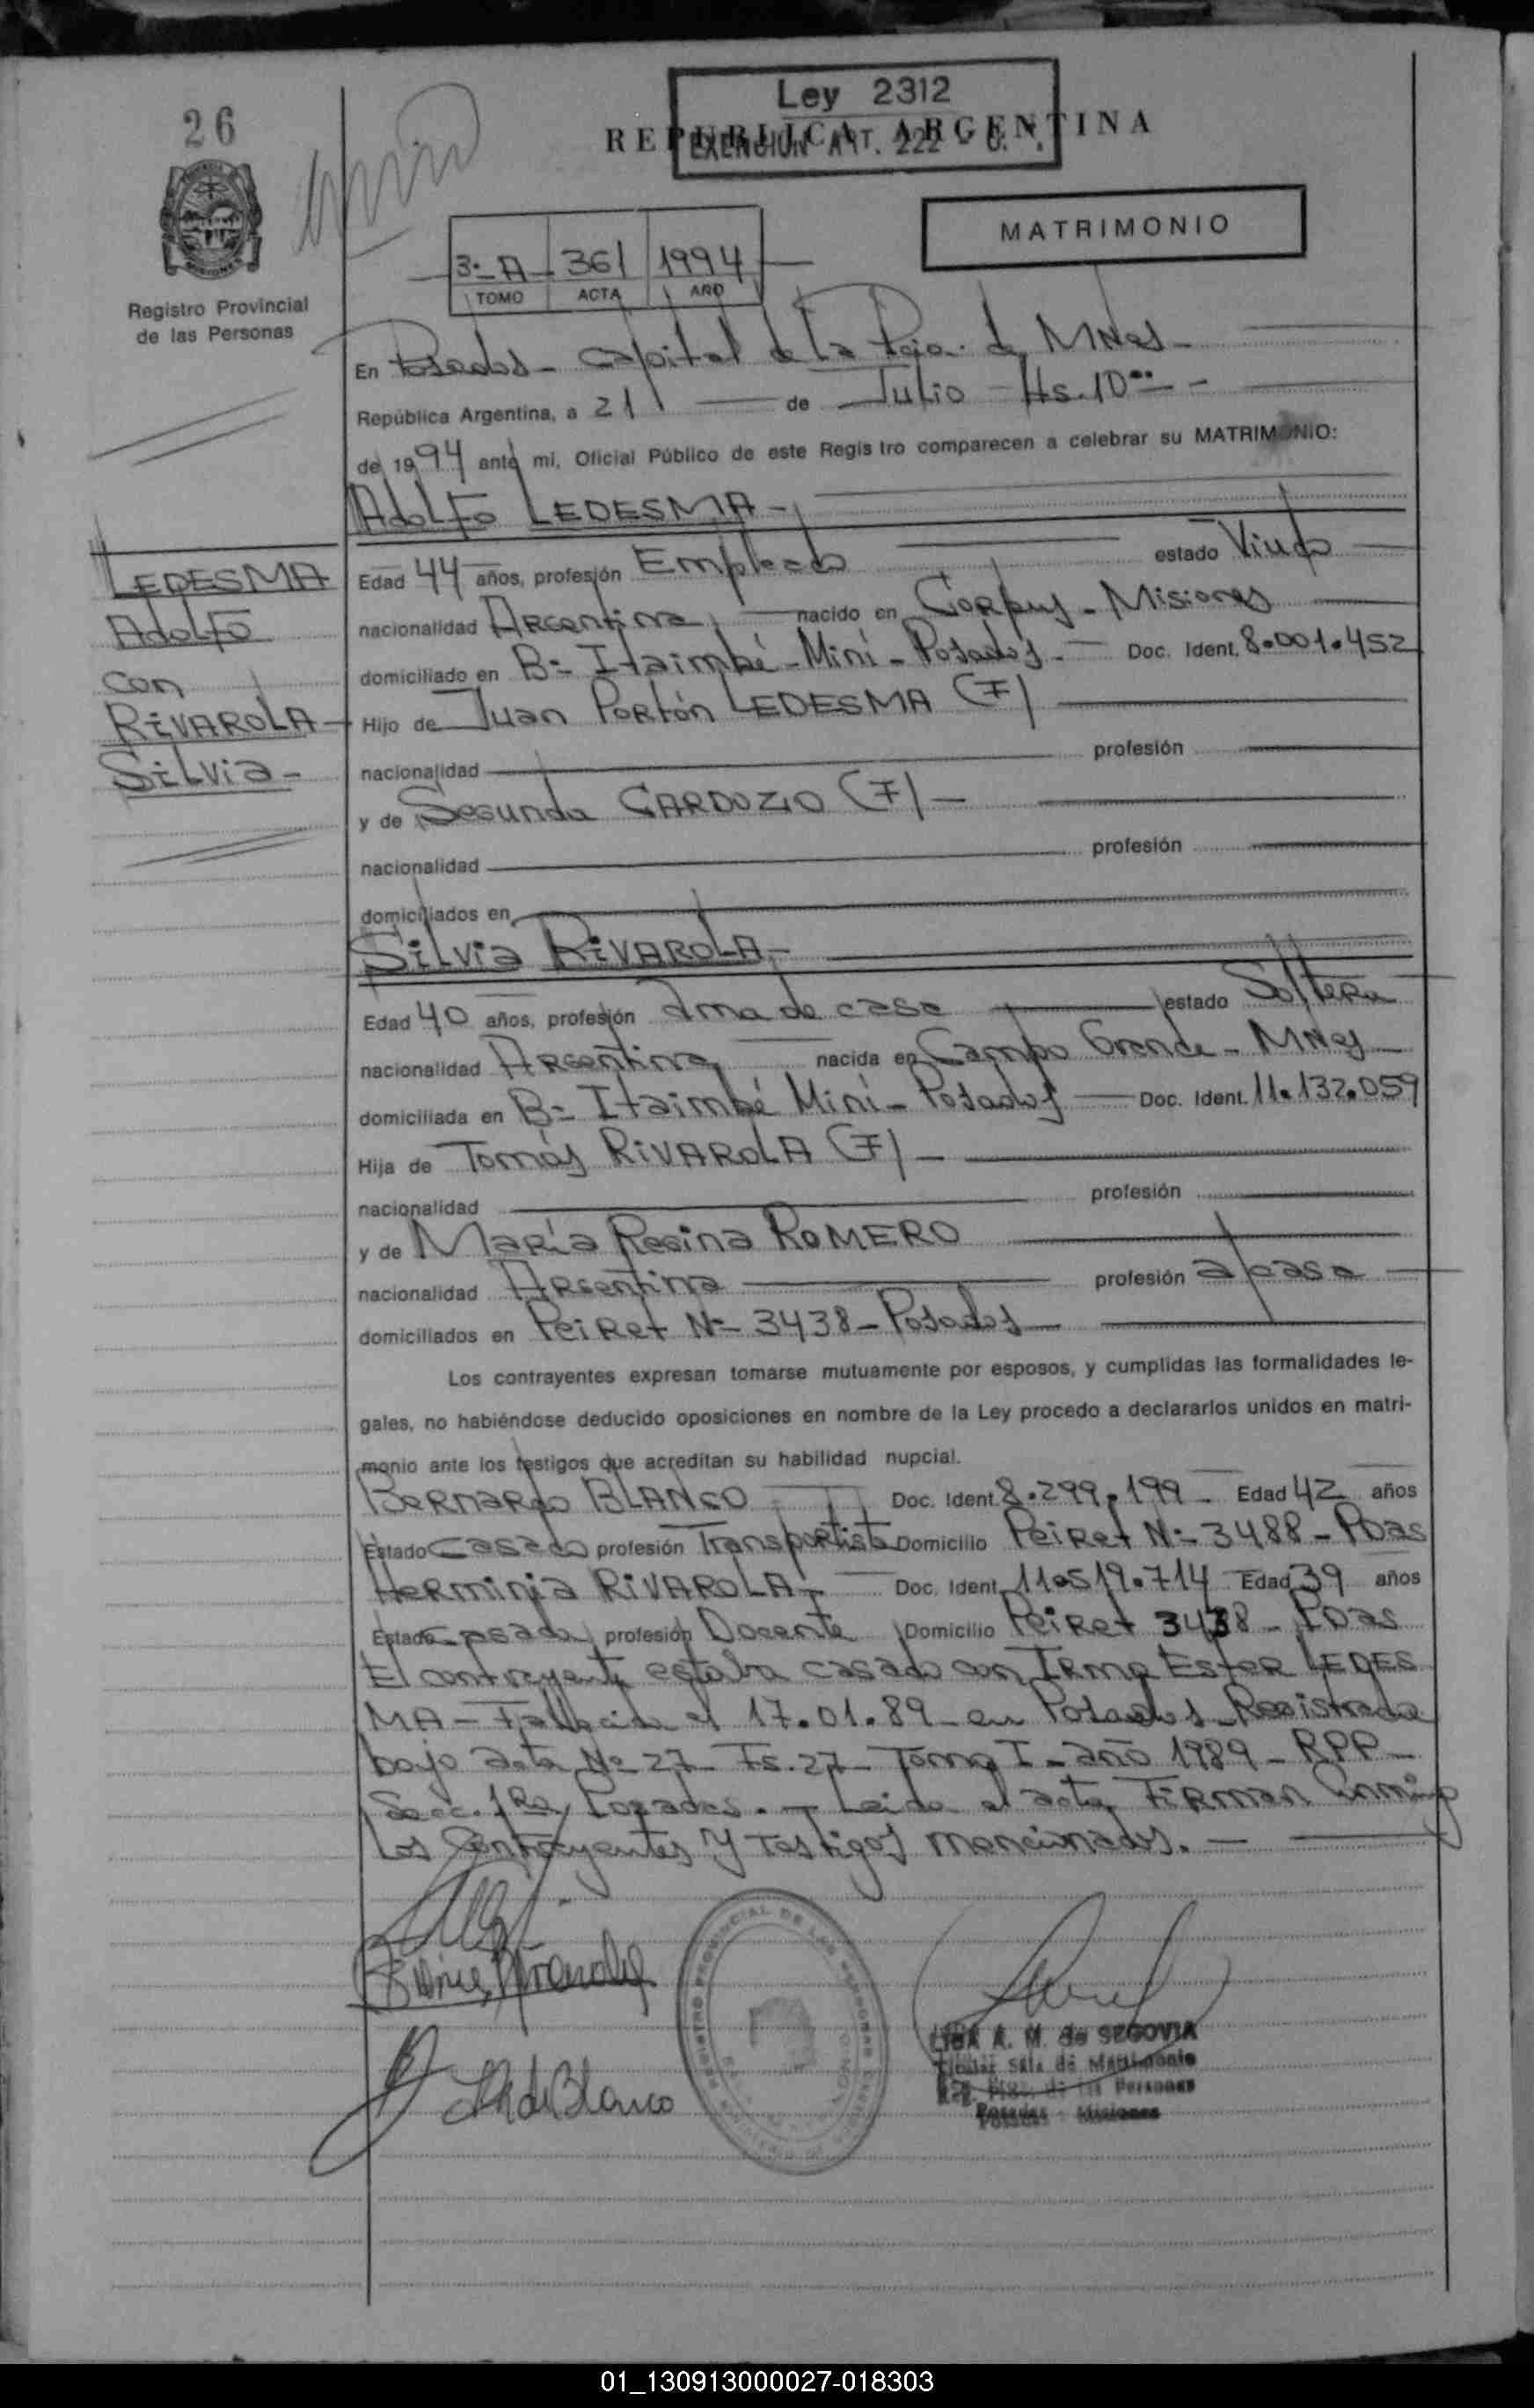 26
Ley 2312
REPUBLICA ARGENTINA
EXENCION ART. 222
MATRIMONIO
3.- A - 361 1994
TOMO ACTA AÑO
Registro Provincial
de las Personas
En Posadas - Capital de la Pcia. de MNes -
República Argentina, a 21 de Julio - Hs. 10
de 1994 ante mí, Oficial Público de este Registro comparecen a celebrar su MATRIMONIO:
Adolfo LEDESMA -
LEDESMA
Adolfo
con
RIVAROLA
Silvia -
Edad 44 años, profesión Empleado estado Viudo
nacionalidad Argentina nacido en Corpus - Misiones
domiciliado en B= Itaimbé - Miní - Posadas - Doc. Ident. 8.001.452
Hijo de Juan Portón LEDESMA (F)
nacionalidad profesión
y de Segunda CARDOZO (F) -
nacionalidad profesión
domiciliados en
Silvia RIVAROLA -
Edad 40 años, profesión Ama de casa estado Soltera
nacionalidad Argentina nacida en Campo Grande - MNes
domiciliada en B= Itaimbé Miní - Posadas Doc. Ident. 11.132.059
Hija de Tomás RIVAROLA (F) -
nacionalidad profesión
y de María Regina ROMERO
nacionalidad Argentina profesión a/casa
domiciliados en Peiret N= 3438 - Posadas
Los contrayentes expresan tomarse mutuamente por esposos, y cumplidas las formalidades le-
gales, no habiéndose deducido oposiciones en nombre de la Ley procedo a declararlos unidos en matri-
monio ante los testigos que acreditan su habilidad nupcial.
Bernardo BLANCO Doc. Ident. 8.299.199 - Edad 42 años
Estado Casado profesión Transportista Domicilio Peiret N= 3488 - Pdas
Herminia RIVAROLA - Doc. Ident. 11.519.714 Edad 39 años
Estado casada profesión Docente Domicilio Peiret 3438 - Pdas
El contrayente estaba casado con Irma Ester LEDES
MA - Fallecida el 17.01.89 en Posadas - Registrada
bajo acta Nº 27 - Fs. 27 - Tomo I - año 1989 - RPP -
Secc. 1ra Posadas. - Leida el acta, Firman
los Contrayentes y Testigos mencionados. -
Silvia Rivarola
de Blanco
REGISTRO PROVINCIAL DE LAS PERSONAS
A. M. de SEGOVIA
Titular Sala de Matrimonio
de las Personas
Posadas - Misiones
01_130913000027-018303